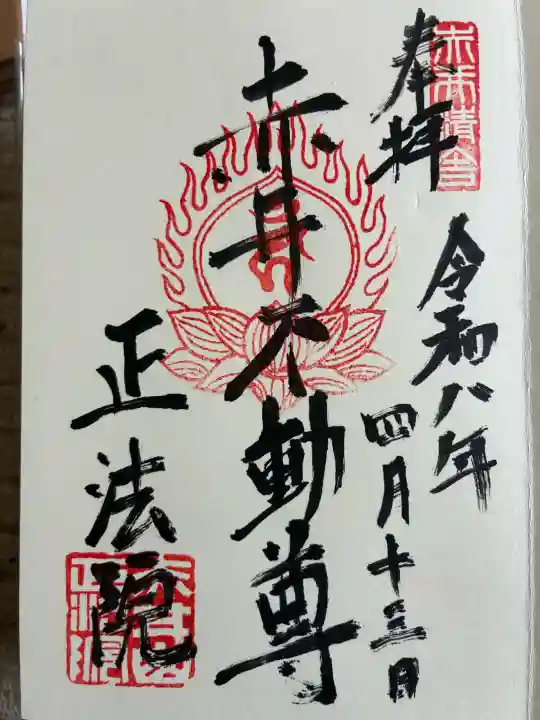 奉拝
令和八年
四月十三日
赤井不動尊
正法院